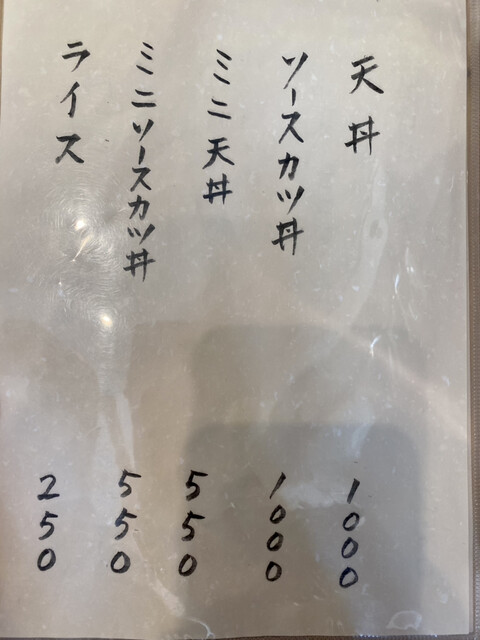 天丼 1000
ソースカツ丼 1000
ミニ天丼 550
ミニソースカツ丼 550
ライス 250